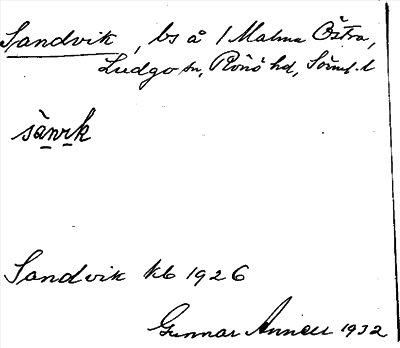 Sandvik, bs å 1 Malma Östra,
Ludgo sn, Rönö hd, Söml. l
sànvk
Sandvik kb 1926
Gunnar Annell 1932